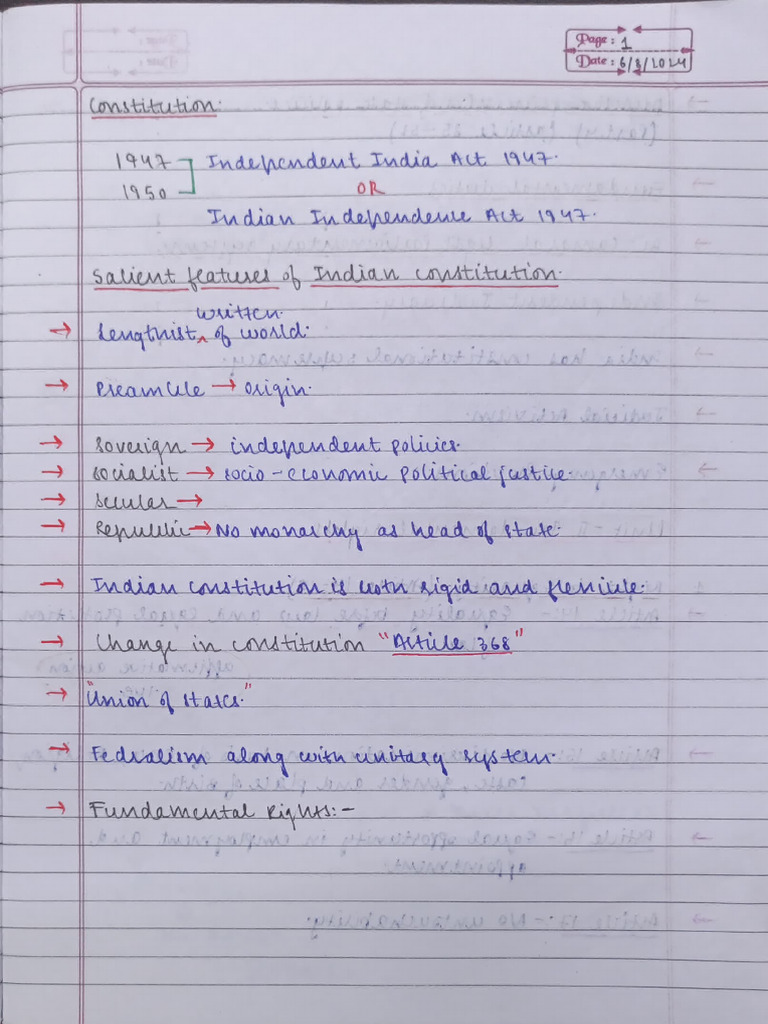 Page: 1
Date: 6/8/2024
Constitution.
1947 Independent India Act 1947.
1950 OR
Indian Independence Act 1947.
Salient features of Indian constitution.
written.
Lengthist ^ of world.
Preamble → origin.
→ Soverign → independent policies.
→ socialist → socio-economic political justice.
→ Secular →
→ Republic → No monarchy as head of state.
→ Indian constitution is both rigid and flexible.
→ Change in constitution "Article 368"
→ "Union of states."
→ Fedralism along with unitary system.
→ Fundamental Rights:-